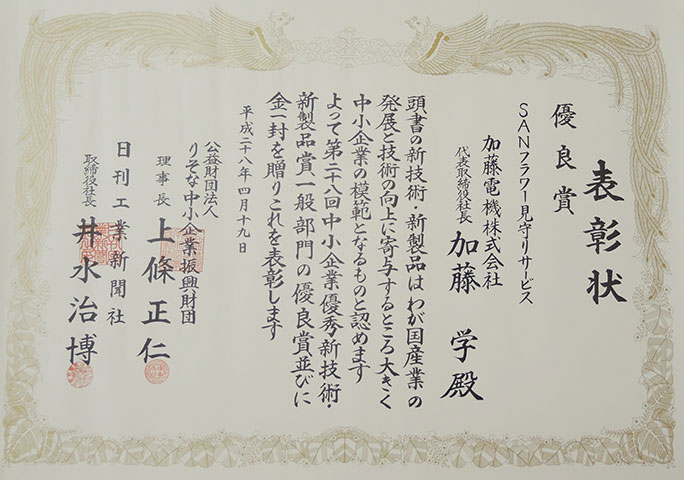 表彰状
優良賞
SANフラワー見守りサービス
加藤電機株式会社
代表取締役社長 加藤 学殿
頭書の新技術・新製品はわが国産業の
発展と技術の向上に寄与するところ大きく
中小企業の模範となるものと認めます
よって第二十八回中小企業優秀新技術・
新製品賞一般部門の優良賞並びに
金一封を贈りこれを表彰します
平成二十八年四月十九日
公益財団法人
りそな中小企業振興財団
理事長 上條正仁
日刊工業新聞社
取締役社長 井水治博